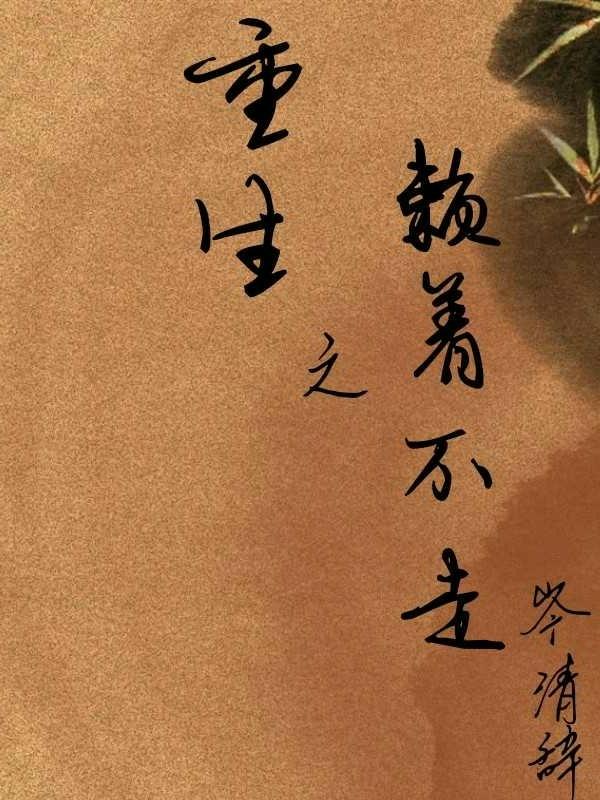 重生
之
赖着不走
岑清辞